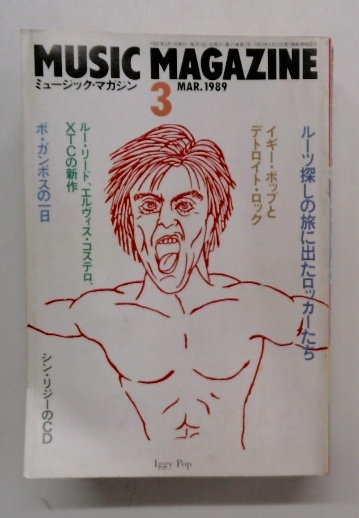 MUSIC MAGAZINE
ミュージック・マガジン
3 MAR.1989
ルーツ探しの旅に出たロッカーたち
イギー・ポップと
デトロイト・ロック
ルー・リード、エルヴィス・コステロ、
XTCの新作
ボ・ガンボスの一日
シン・リジーのCD
Iggy Pop